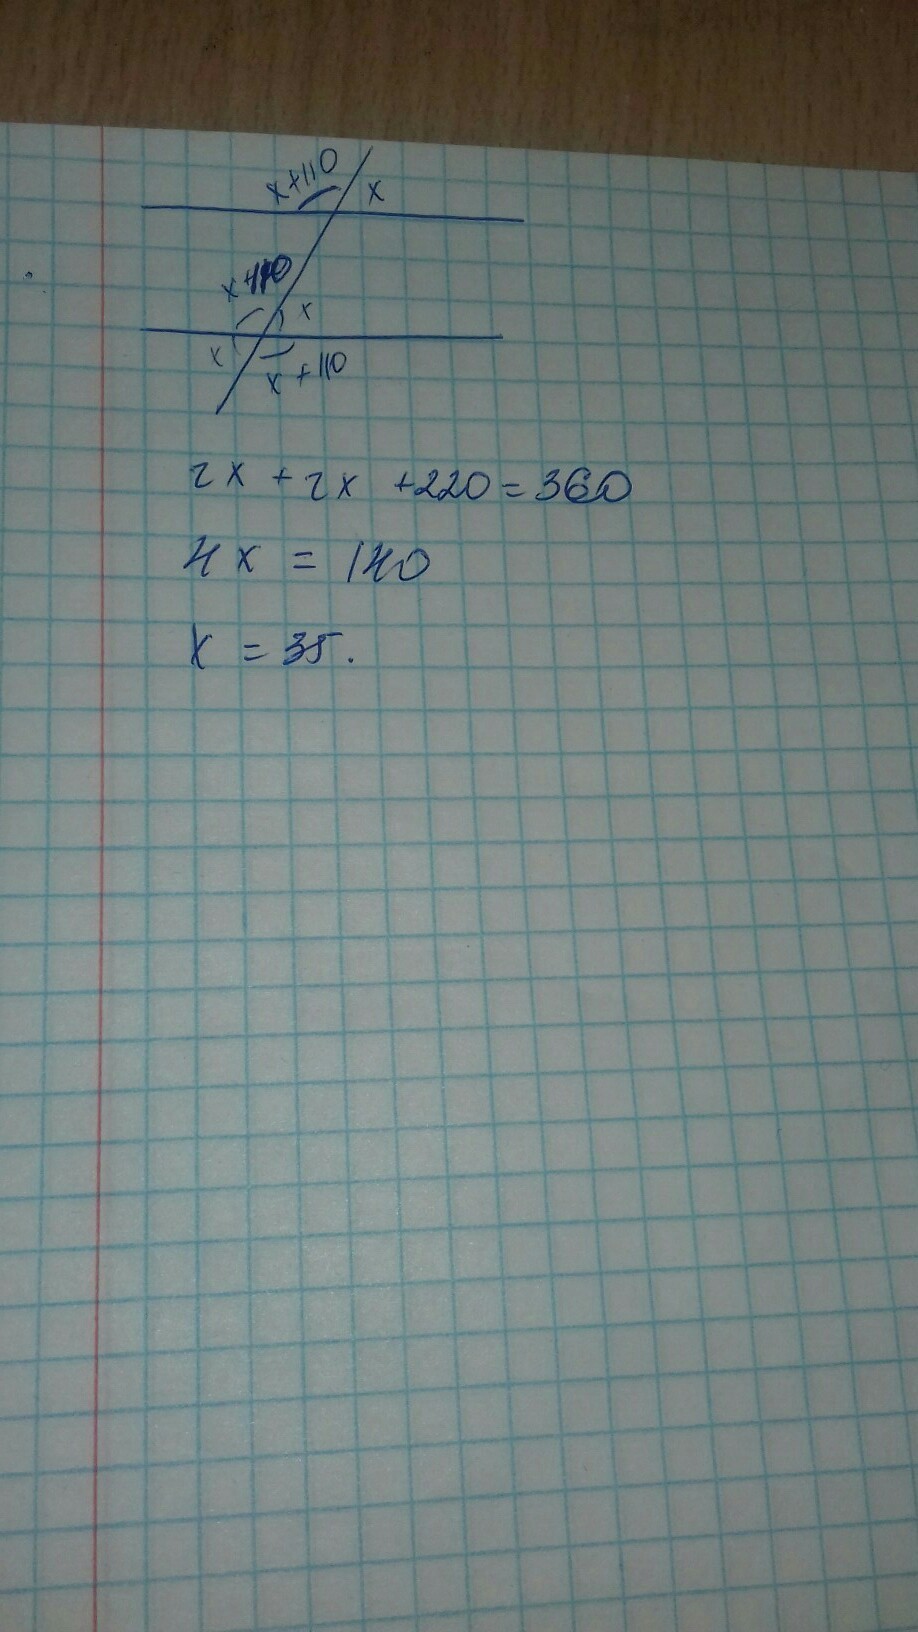 x+110
x
x+110
x
x
x+110
2x + 2x +220=360
4x = 140
x = 35.